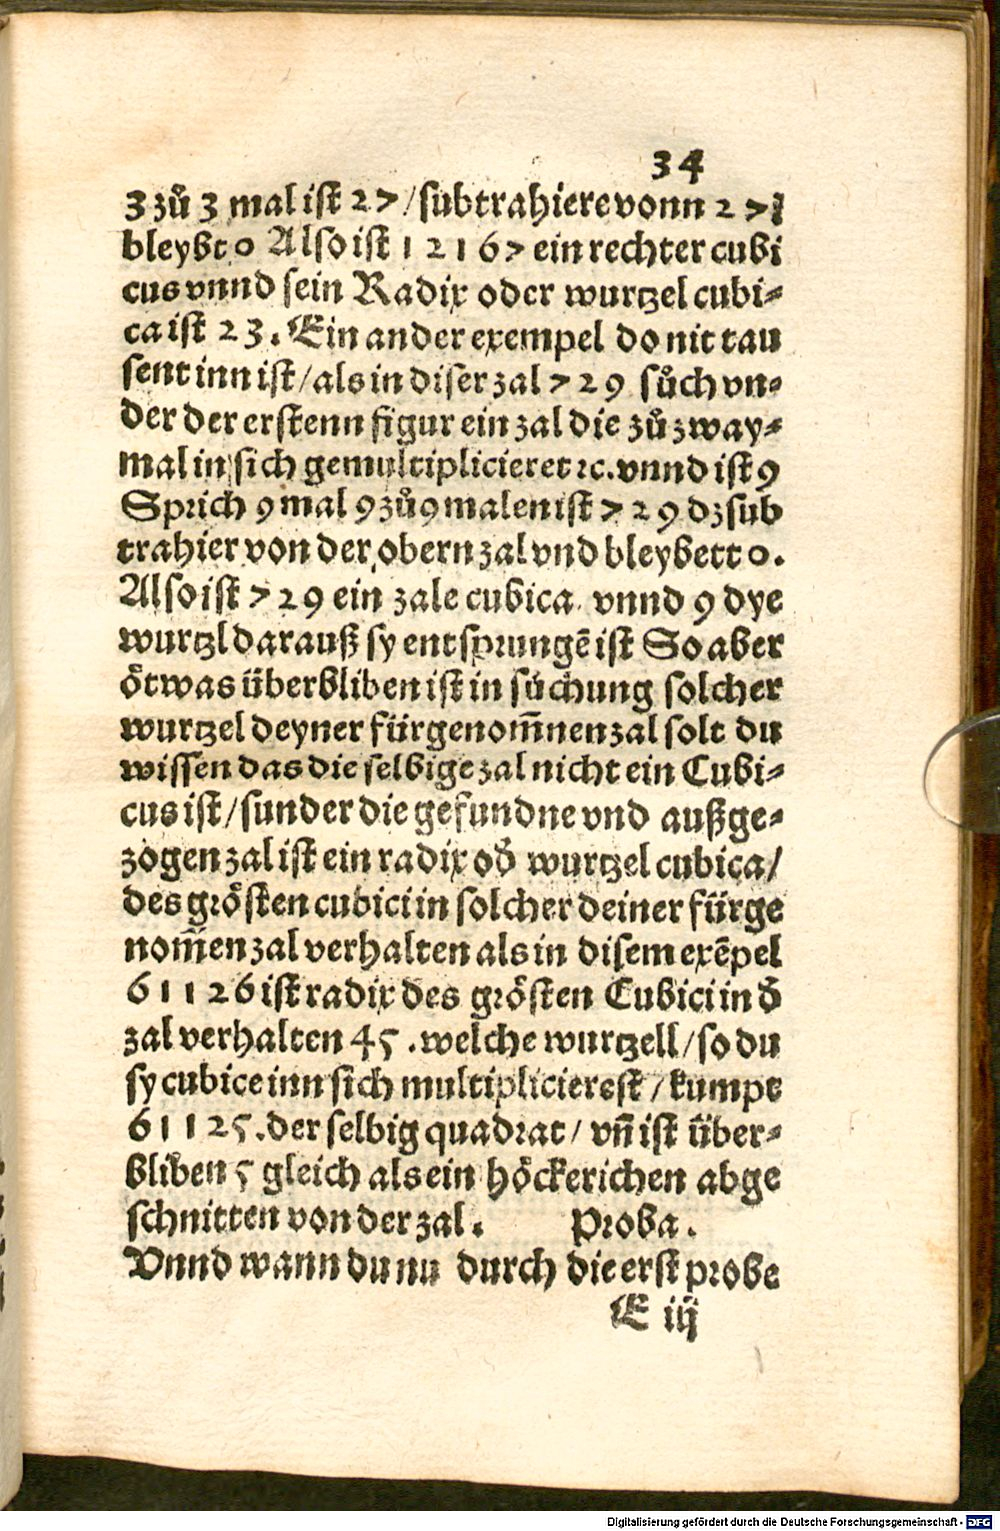 34
3 zů 3 mal ist 27/subtrahiere vonn 27
bleybt 0 Also ist 12167 ein rechter cubi
cus vnnd sein Radix oder wurtzel cubi⸗
ca ist 23. Ein ander exempel do nit tau
sent inn ist/als in diser zal 729 sůch vn⸗
der der erstenn figur ein zal die zů zway⸗
mal in sich gemultiplicieret ꝛc. vnnd ist 9
Sprich 9 mal 9 zů 9 malen ist 729 dz sub
trahier von der obern zal vnd bleybett 0.
Also ist 729 ein zale cubica vnnd 9 dye
wurtzl darauß sy entsprungē ist So aber
ötwas überbliben ist in sůchung solcher
wurtzel deyner fürgenom̄nen zal solt du
wissen das die selbige zal nicht ein Cubi⸗
cus ist/sunder die gefundne vnd außge⸗
zogen zal ist ein radix od̄ wurtzel cubica/
des grösten cubici in solcher deiner fürge
nom̄en zal verhalten als in disem exēpel
61126 ist radix des grösten Cubici in d̄
zal verhalten 45. welche wurtzell/so du
sy cubice inn sich multiplicierest/kumpt
61125. der selbig quadrat/vn̄ ist über⸗
bliben 5 gleich als ein höckerichen abge
schnitten von der zal. Proba.
Vnnd wann du nu durch die erst probe
E iij
Digitalisierung gefördert durch die Deutsche Forschungsgemeinschaft - DFG